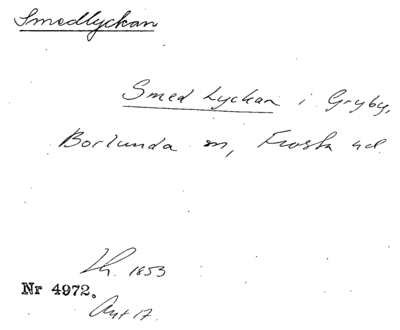 Smedlyckan
Smed Lyckan i Gryby,
Borlunda sn, Frosta hd
Lh. 1853
Nr 4972.
Ant 17.